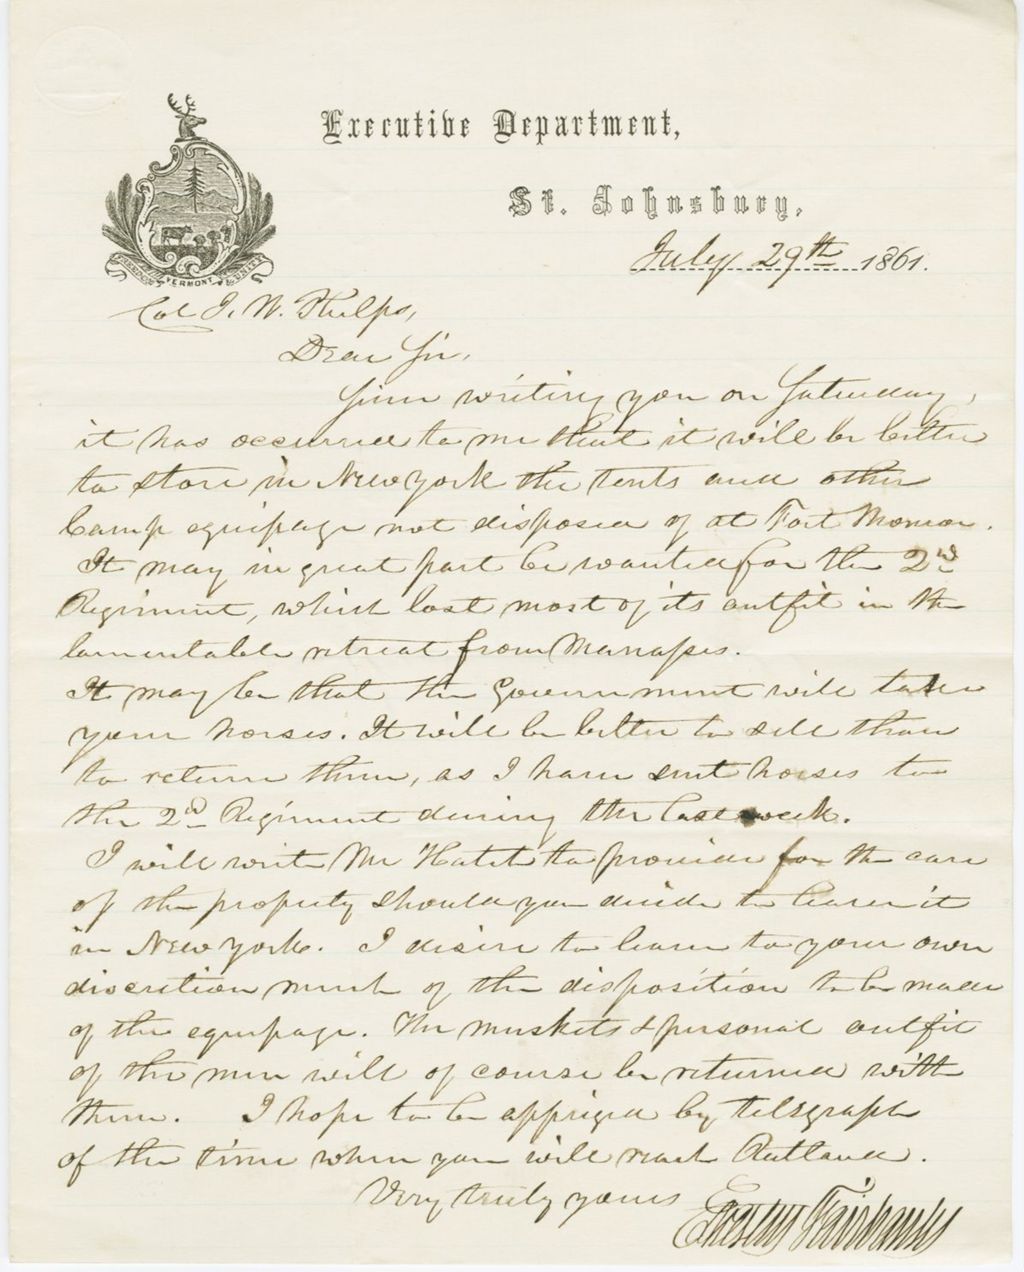 Executive Department,
St. Johnsbury,
July 29th 1861.
VERMONT
Col J. W. Phelps,
Dear Sir,
Since writing you on Saturday,
it has occurred to me that it will be better
to store in New York the tents and other
Camp equipage not disposed of at Fort Monroe.
It may in great part be wanted for the 2nd
Regiment, which lost most of its outfit in the
lamentable retreat from Manassas.
It may be that the Government will take
your horses. It will be better to sell than
to return them, as I have sent horses to
the 2d Regiment during the last week.
I will write Mr Hatch to provide for the care
of the property should you decide to leave it
in New York. I desire to leave to your own
discretion much of the disposition to be made
of the equipage. The muskets & personal outfit
of the men will of course be returned with
them. I hope to be apprized by telegraph
of the time when you will reach Rutland.
Very truly yours
Erastus Fairbanks